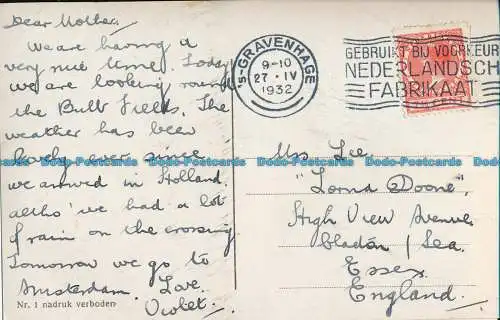 Dear Mother.
We are having a
very nice time. Today
we are looking round
the Bulb Fields. The
weather has been
lovely ever since
we arrived in Holland.
altho' we had a lot
of rain on the crossing
Tomorrow we go to
Amsterdam. Love.
Violet.
Nr. 1 nadruk verboden
's-GRAVENHAGE
9-10
27·IV
1932
GEBRUIKT BIJ VOORKEUR
NEDERLANDSCH
FABRIKAAT
Dodo-Postcards Dodo-Postcards Dodo-Postcards Dodo-Postcards Dodo-Postcards
Mss Lee.
"Lorna Doone",
High View Avenue
Bladon / Sea.
Essex.
England.